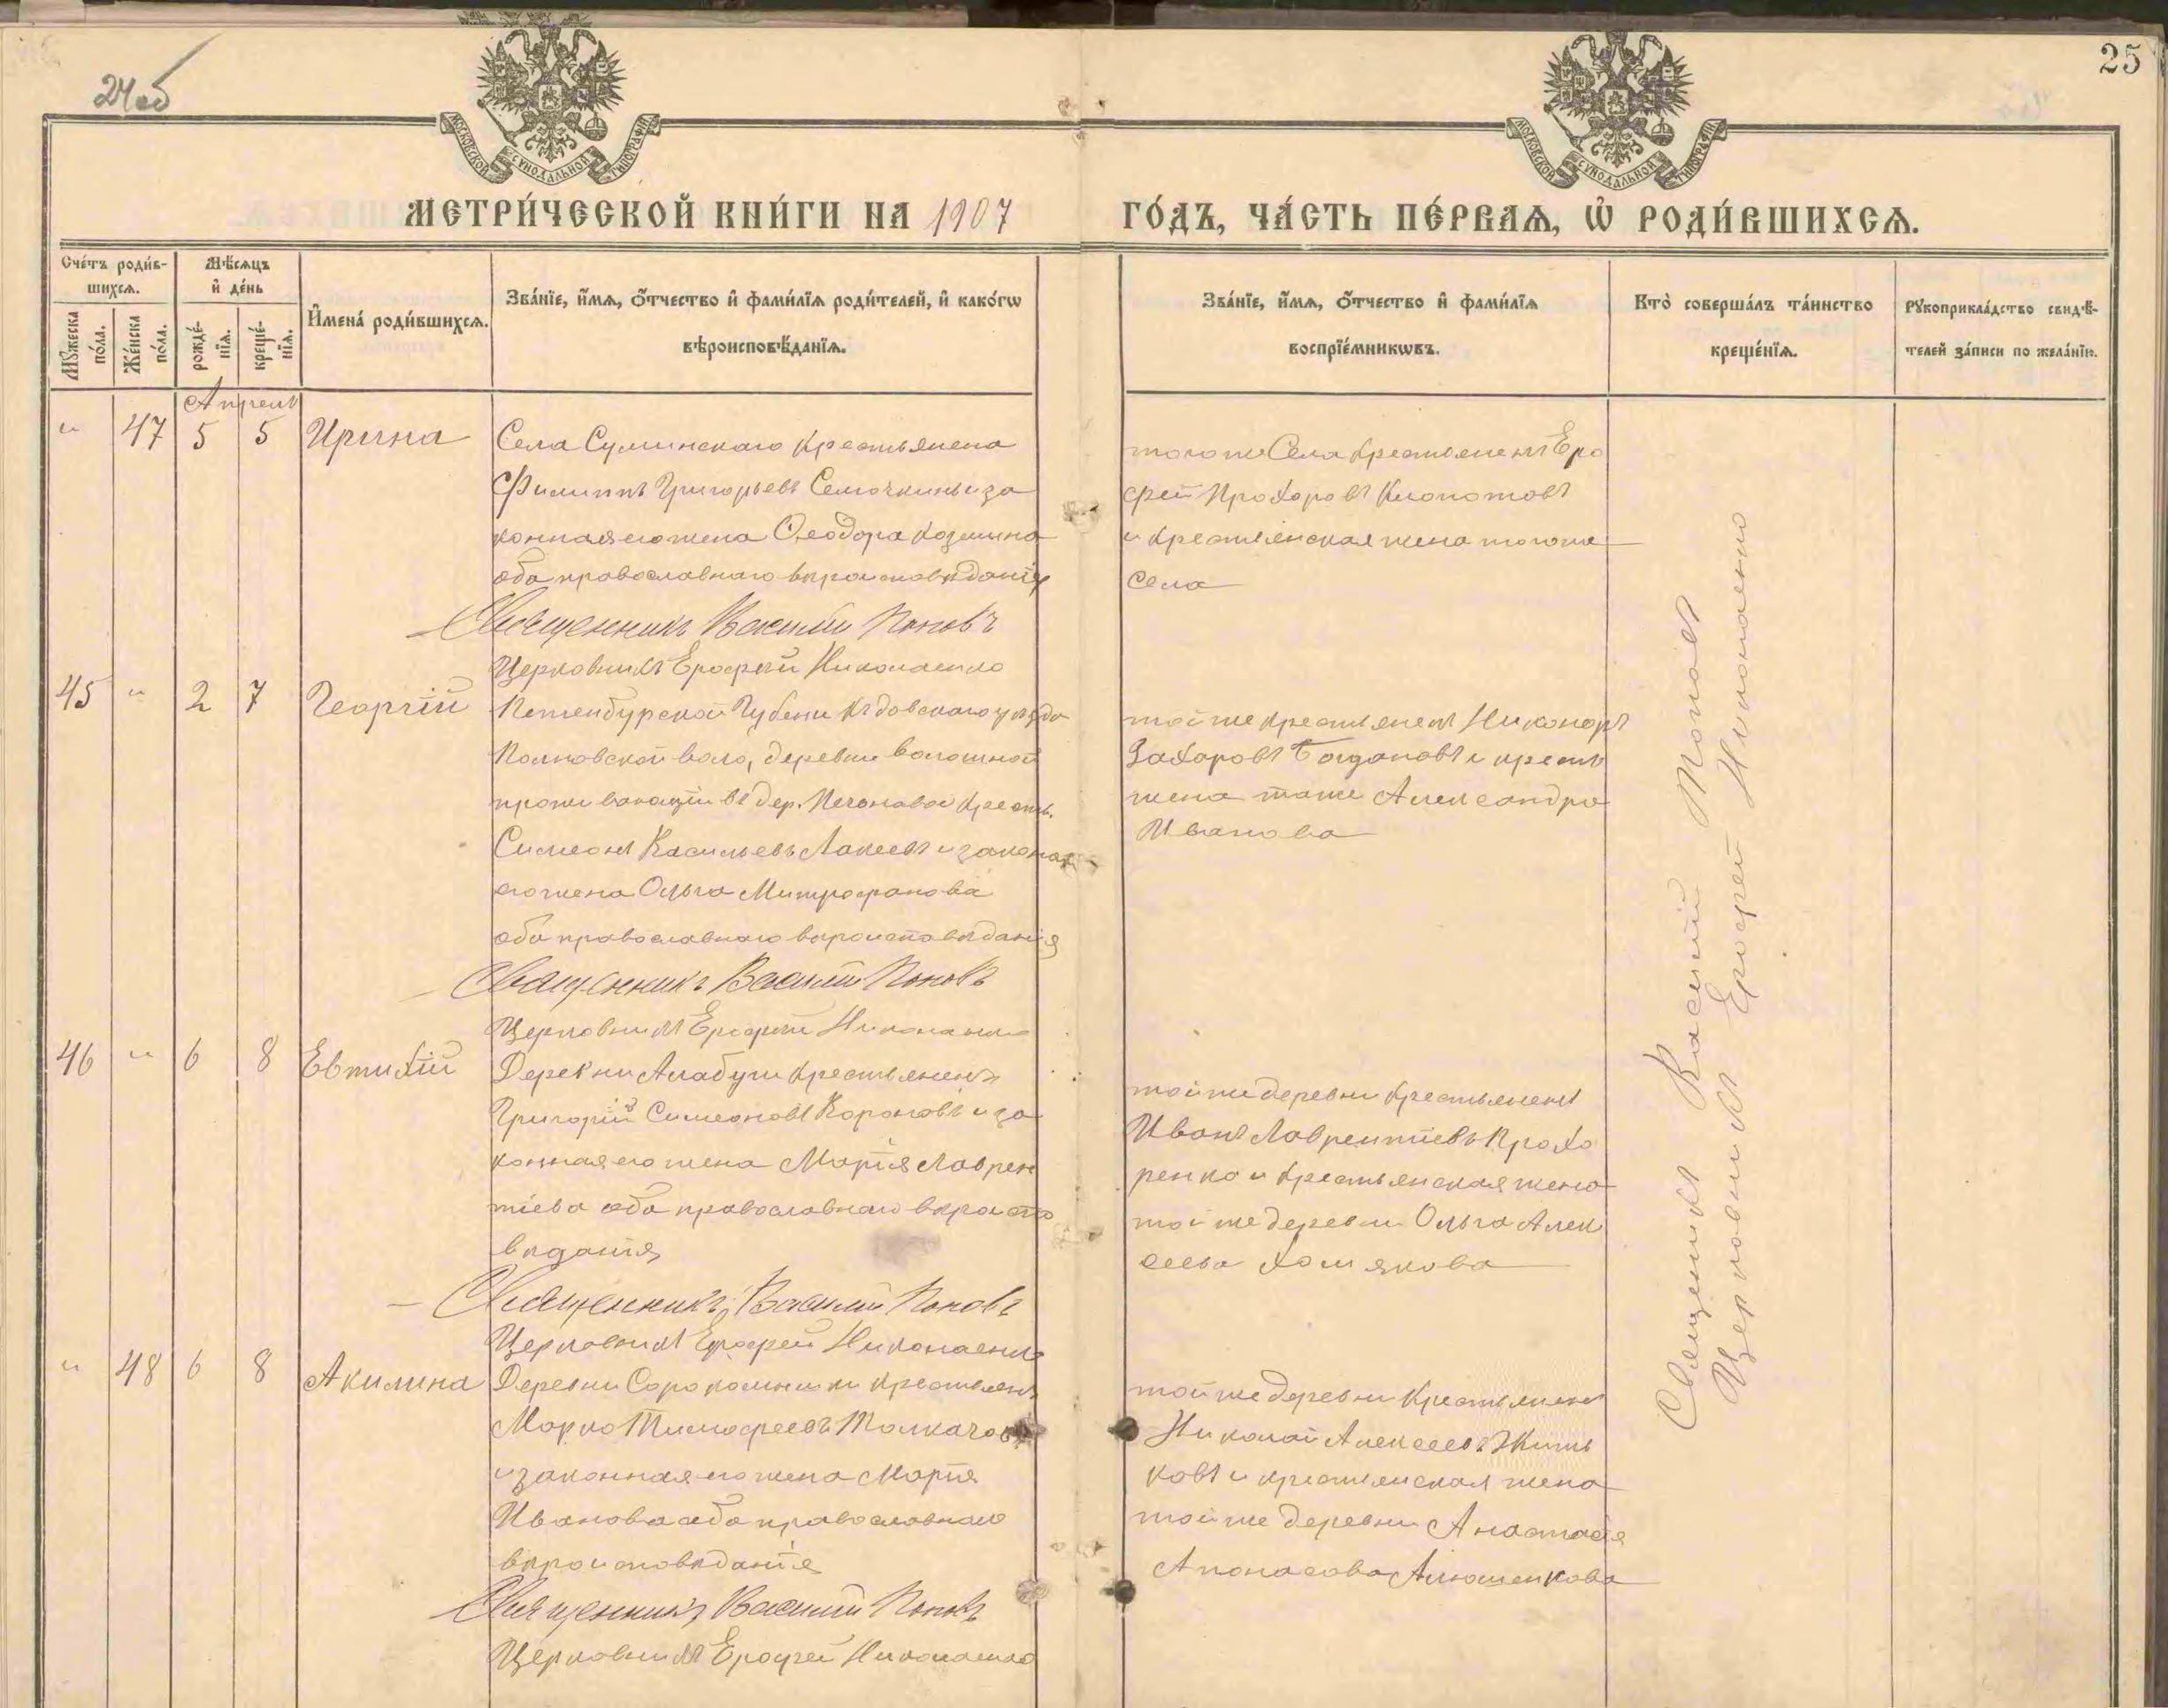 24об
25
МОСКОВСКОЙ СѴНОДАЛЬНОЙ ТИПОГРАФІИ
МОСКОВСКОЙ СѴНОДАЛЬНОЙ ТИПОГРАФІИ
МЕТРИ́ЧЕСКОЙ КНИ́ГИ НА 1907 ГО́ДЪ, ЧА́СТЬ ПЕ́РВАѦ, Ѽ РОДИ́ВШИХСѦ.
Сче́тъ роди́в-
шихсѧ.
Мꙋ́жеска по́ла.
Же́нска по́ла.
Мѣ́сѧцъ
и҆ де́нь
рожде́-нїѧ.
креще́-нїѧ.
И҆мена̀ роди́вшихсѧ.
Зва́нїе, и҆́мѧ, ѻ҆́тчество и҆ фами́лїѧ роди́телей, и҆ како́гѡ
вѣроисповѣ́данїѧ.
Зва́нїе, и҆́мѧ, ѻ҆́тчество и҆ фами́лїѧ
воспрїе́мникѡвъ.
Кто̀ соверша́лъ та́инство
креще́нїѧ.
Рꙋкоприкла́дство свидѣ́-
телей за́писи по жела́нїю.
Апрель
" 47 5 5 Ирина
Села Суминскаго крестьянена
Филиппъ Григорьевъ Семочкинъ и за
конная его жена Ѳеодора Козмина
оба православнаго вѣроисповѣданія
Священникъ Василій Поповъ
Церковникъ Ерофей Николаенко
тогоже Села крестьяненъ Еро
фей Прохоровъ Клопотовъ
и крестьянская жена тогоже
Села
45 " 2 7 Георгій
Петенбурской Губени Гдовскаго уѣзда
Полновской воло, деревни
проживающіи въ дер. крестъ.
Симеонъ Васильевъ Лакеевъ и законая
его жена Ольга Митрофанова
оба православнаго вѣроисповѣданія
Священникъ Василій Поповъ
Церковникъ Ерофей Николаенко
тойже крестьяненъ Никоноръ
Захаровъ Богдановъ и крестъ
жена таже Александра
Иванова
46 " 6 8 Евтихій
Деревни Алабуги крестьяненъ
Григорій Симеоновъ Вороновъ и за
конная его жена Марія Лаврен
тіева оба православнаго вѣроиспо
вѣданія
Священникъ Василій Поповъ
Церковникъ Ерофей Николаенко
тойже деревни крестьяненъ
Иванъ Лаврентіевъ Прохо
ренко и крестьянская жена
тойже деревни Ольга Алек
сеева Хомякова
" 48 6 8 Акилина
Деревни крестьяненъ
Марко Тимофеевъ Толкачовъ
и законная его жена Марія
Иванова оба православнаго
вѣроисповѣданія
Священникъ Василій Поповъ
Церковникъ Ерофей Николаенко
тойже деревни крестьяненъ
Николай Алексеевъ Житъ
ковъ и крестьянская жена
тойже деревни Анастасія
Апонасова
Священникъ Василій Поповъ
Церковникъ Ерофей Николаенко